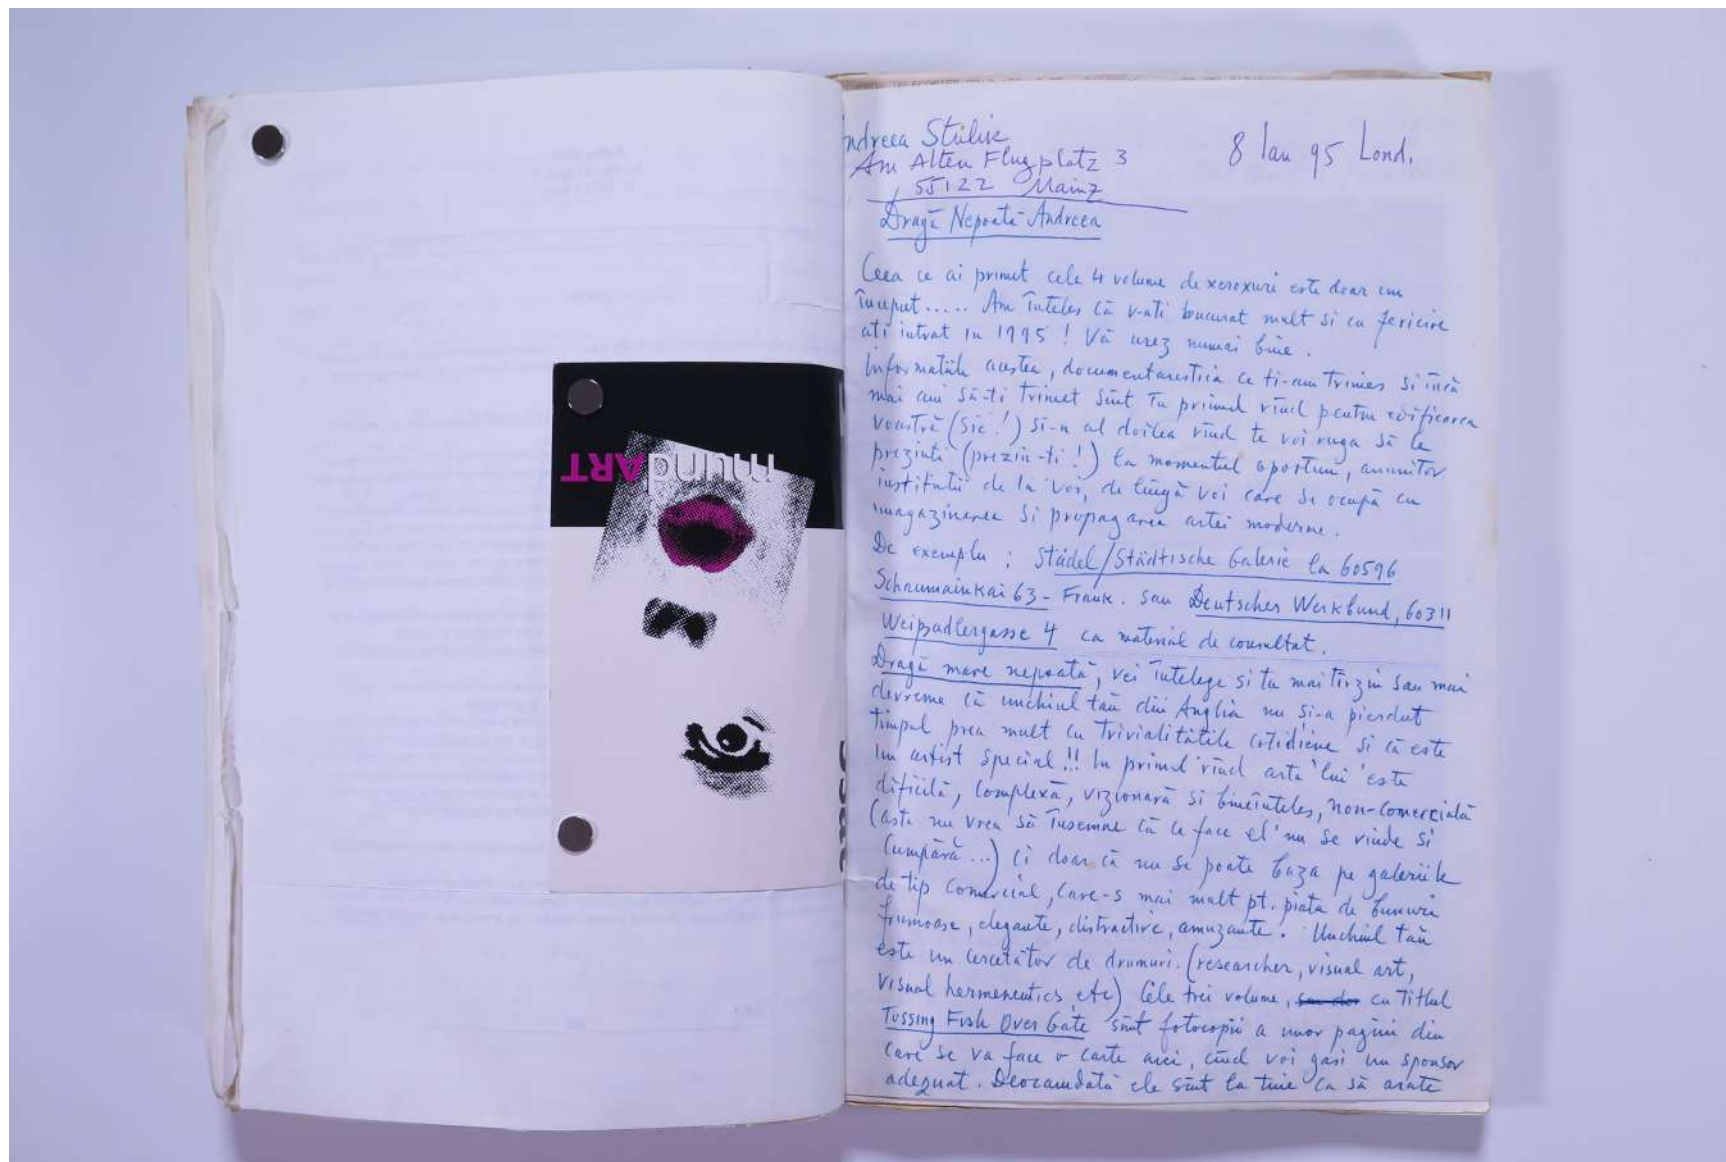 mundART
ndreea
Am Alten Flugplatz 3
8 Ian 95 Lond.
55122 Mainz
Dragă Nepoată Andreea
Ceea ce ai primit cele 4 volume de xeroxuri este doar un
început ..... Am înteles că v-ati bucurat mult si cu fericire
ati intrat in 1995 ! Vă urez numai bine.
Informatiile acestea, ce ti-am trimes si încă
mai am să-ti trimet sînt în primul rînd pentru edificarea
voastră (sic!) si-n al doilea rînd te voi ruga să le
prezinti (prezin-ti!) la momentul oportun, anumitor
institutii de la voi, de lîngă voi care se ocupă cu
imagazinarea si propagarea artei moderne.
De exemplu : Städel/Städtische Galerie la 60596
Schaumainkai 63 - Frank. sau Deutscher Werkbund, 60311
Weipsadlergasse 4 ca material de consultat.
Dragă mare nepoată, vei întelege si tu mai tîrziu sau mai
devreme că unchiul tău din Anglia nu si-a pierdut
timpul prea mult cu trivialitătile cotidiene si că este
un artist special !! In primul rînd arta 'lui' este
dificilă, complexă, vizionară si bineînteles, non-comercială
(asta nu vrea să însemne că ce face el nu se vinde si
cumpără...) ci doar că nu se poate baza pe galeriile
de tip comercial, care-s mai mult pt. piata de bunuri
frumoase, elegante, distractive, amuzante. Unchiul tău
este un cercetător de drumuri. (researcher, visual art,
visual hermeneutics etc) Cele trei volume, cu titlul
Tossing Fish Over Gate sînt fotocopii a unor pagini din
care se va face o carte aici, cînd voi găsi un sponsor
adequat. Deocamdată ele sînt la tine ca să arate